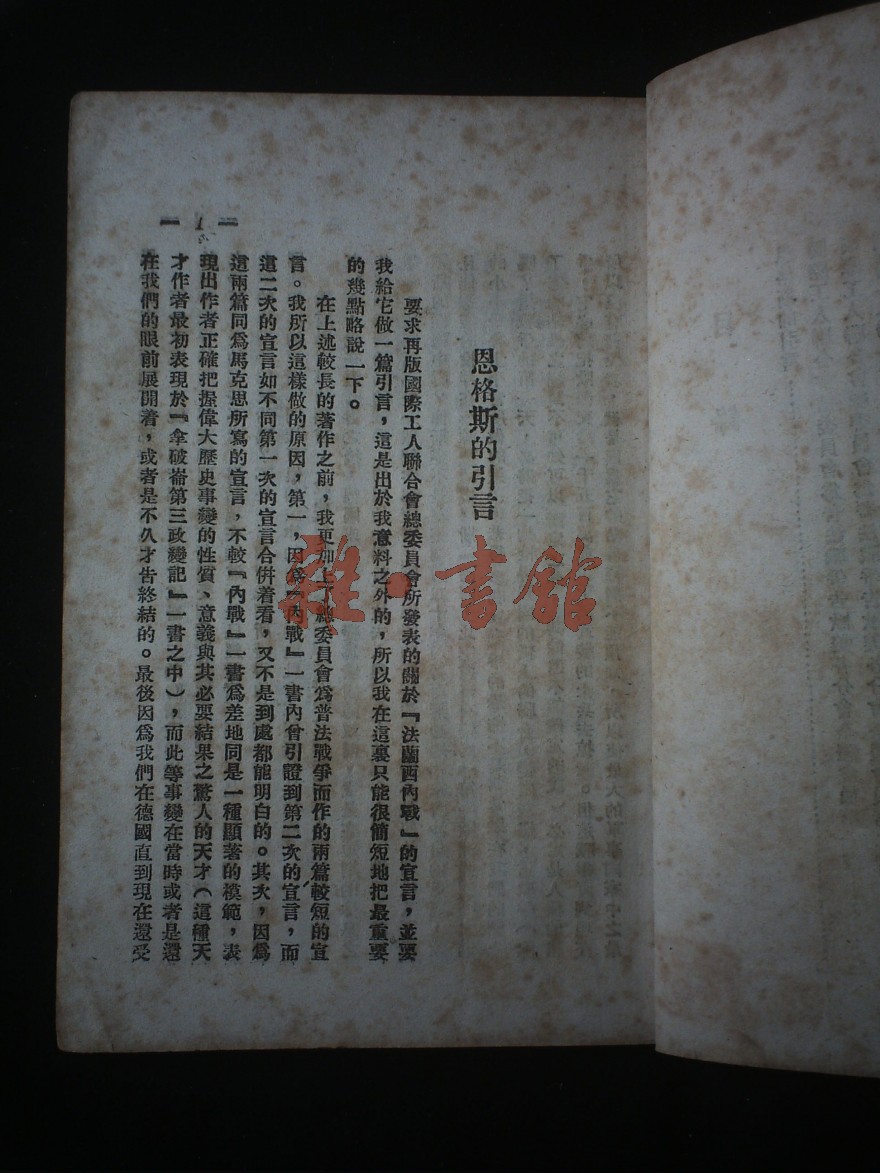 恩格斯的引言
要求再版國際工人聯合會總委員會所發表的關於『法蘭西內戰』的宣言，並要
我給它做一篇引言，這是出於我意料之外的，所以我在這裏只能很簡短地把最重要
的幾點略說一下。
在上述較長的著作之前，我更加上了總委員會爲普法戰爭而作的兩篇較短的宣
言。我所以這樣做的原因，第一，因爲『內戰』一書內曾引證到第二次的宣言，而
這二次的宣言如不同第一次的宣言合併着看，又不是到處都能明白的。其次，因爲
這兩篇同爲馬克思所寫的宣言，不較『內戰』一書爲差地同是一種顯著的模範，表
現出作者正確把握偉大歷史事變的性質、意義與其必要結果之驚人的天才（這種天
才作者最初表現於『拿破崙第三政變記』一書之中），而此等事變在當時或者是還
在我們的眼前展開着，或者是不久才告終結的。最後因爲我們在德國直到現在還受
1
雜·書館